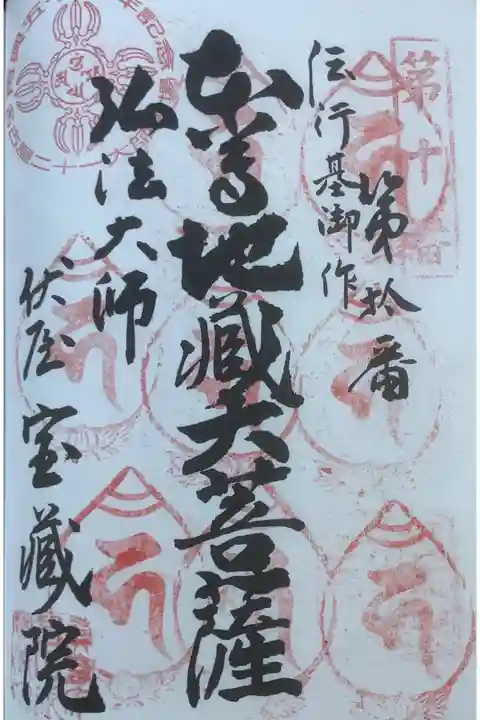 第拾番
伝行基御作
本尊地蔵大菩薩
弘法大師
伏屋宝蔵院
第十